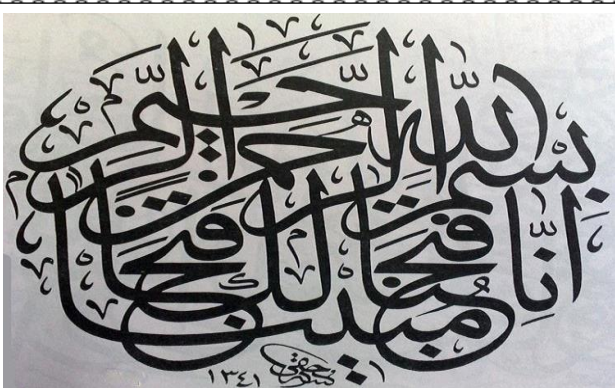 بسم الله الرحمن الرحيم
إنا فتحنا لك فتحا مبينا
١٣٤١